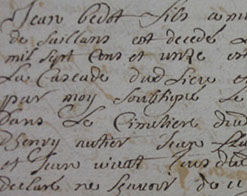 Jean bedot fils a
de saillans est decedé Le
mil sept Cens et unze et
La Cascade dud Lieu et
par moy soubsigné Le
dans Le Cimitiere dud
henry Jean
et Jean
declaré ne scavoir de ce